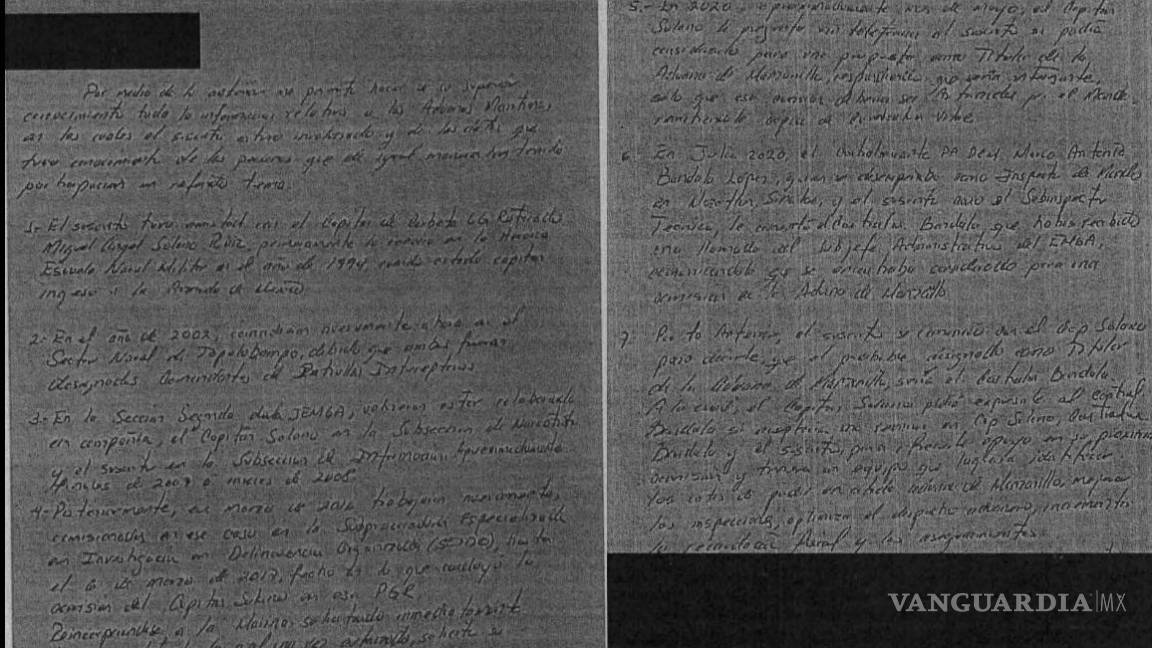 Por medio de la presente me permito hacer de su superior
conocimiento toda la información relativa a las Aduanas Marítimas,
en las cuales el suscrito estuvo involucrado y de los datos que
tuvo conocimiento de las personas que de igual manera han tenido
participación en referido tema.
1.- El suscrito tuvo contacto con el Capitán de Corbeta CG. Retirado
Miguel Angel Solano Ruiz, primeramente lo conocio en la Heroica
Escuela Naval Militar en el año de 1994, cuando citado capitán
ingresó a la Armada de México
2.- En el año de 2002, coincidieron nuevamente ahora en el
Sector Naval de Topolobampo, debido que ambos fueron
designados Comandantes de Patrullas Interceptoras
3.- En la Sección Segunda del JEMGA, volvieron estar colaborando
en compañía, el Capitán Solano en la Subsección de Narcotráfico
y el suscrito en la Subsección de Información, aproximadamente
de 2007 a marzo de 2008.
4.- Posteriormente, en marzo de 2016 trabajaron nuevamente,
comisionados en ese caso en la Subprocuraduría Especializada
en Investigación en Delincuencia Organizada (SEIDO), hasta
el 6 de marzo de 2017, fecha en la que concluyó la
comisión del Capitán Solano en esa PGR.
Reincorporándose a la Marina solicitando inmediatamente
5.- En 2020, aproximadamente mes de mayo, el Capitán
Solano le pregunto vía telefónica al suscrito si podía
considerarlo para una propuesta como Titular de la
Aduana de Manzanillo, respondiendo que sería interesante,
solo que esa comisión debería ser autorizada por el Mando
6. En Julio 2020, el Contralmirante PA DEM. Marco Antonio
Bandala López, quien se desempeñaba como Inspector de Marina
en Mazatlán, Sinaloa, y el suscrito como el Subinspector
Técnico, le comentó el Contralm. Bandala, que había recibido
una llamada del Subjefe Administrativo del EMGA,
comunicándole que se encontraba considerado para una
comisión de la Aduana de Manzanillo
7. Por lo Anterior, el suscrito se comunicó con el Cap Solano
para decirle, que el probable designado como Titular
de la Aduana de Manzanillo, sería el Contralm Bandala.
A lo cual, el Capitán Solano pidió expresarle al Contral
Bandala si aceptaría una reunión con Cap Solano, Contralm.
Bandala y el suscrito, para ofrecerle apoyo en su próxima
comisión y traerse un equipo que lograra identificar
los cotos de poder en citada aduana de Manzanillo, mejorar
las inspecciones, optimizar el despacho aduanero, incrementar
la recaudación fiscal y los aseguramientos.
VANGUARDIA|MX